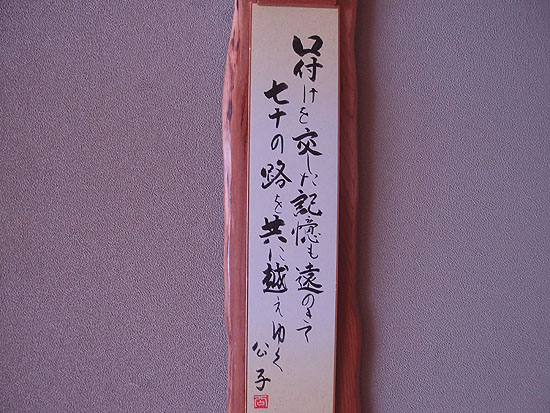 口付けを交した記憶も遠のきて
七十の路を共に越えゆく
公子